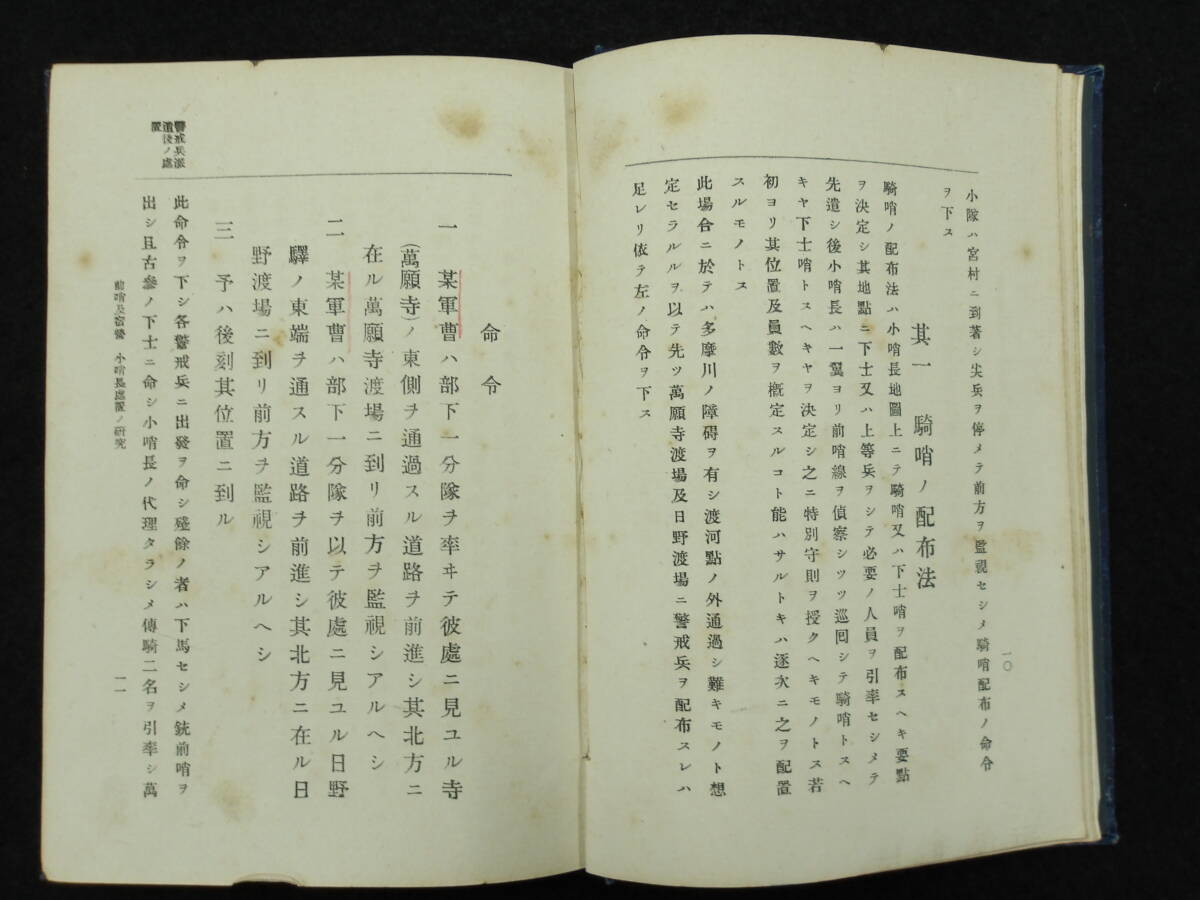 小隊ハ宮村ニ到著シ尖兵ヲ停メテ前方ヲ監視セシメ騎哨配布ノ命令
ヲ下ス
其一　騎哨ノ配布法
騎哨ノ配布法ハ小哨長地圖上ニテ騎哨又ハ下士哨ヲ配布スヘキ要點
ヲ決定シ其地點ニ下士又ハ上等兵ヲシテ必要ノ人員ヲ引率セシメテ
先遣シ後小哨長ハ一翼ヨリ前哨線ヲ偵察シツツ巡囘シテ騎哨トスヘ
キヤ下士哨トスヘキヤヲ決定シ之ニ特別守則ヲ授クヘキモノトス若
初ヨリ其位置及員數ヲ概定スルコト能ハサルトキハ逐次ニ之ヲ配置
スルモノトス
此場合ニ於テハ多摩川ノ障碍ヲ有シ渡河點ノ外通過シ難キモノト想
定セラルルヲ以テ先ツ萬願寺渡場及日野渡場ニ警戒兵ヲ配布スレハ
足レリ依テ左ノ命令ヲ下ス
一〇
命令
一　某軍曹ハ部下一分隊ヲ率ヰテ彼處ニ見ユル寺
（萬願寺）ノ東側ヲ通過スル道路ヲ前進シ其北方ニ
在ル萬願寺渡場ニ到リ前方ヲ監視シアルヘシ
二　某軍曹ハ部下一分隊ヲ以テ彼處ニ見ユル日野
驛ノ東端ヲ通スル道路ヲ前進シ其北方ニ在ル日
野渡場ニ到リ前方ヲ監視シアルヘシ
三　予ハ後刻其位置ニ到ル
警戒兵派
遣後ノ處
置
此命令ヲ下シ各警戒兵ニ出發ヲ命シ殘餘ノ者ハ下馬セシメ銃前哨ヲ
出シ且古參ノ下士ニ命シ小哨長ノ代理タラシメ傳騎二名ヲ引率シ萬
前哨及宿營　小哨長處置ノ研究
一一